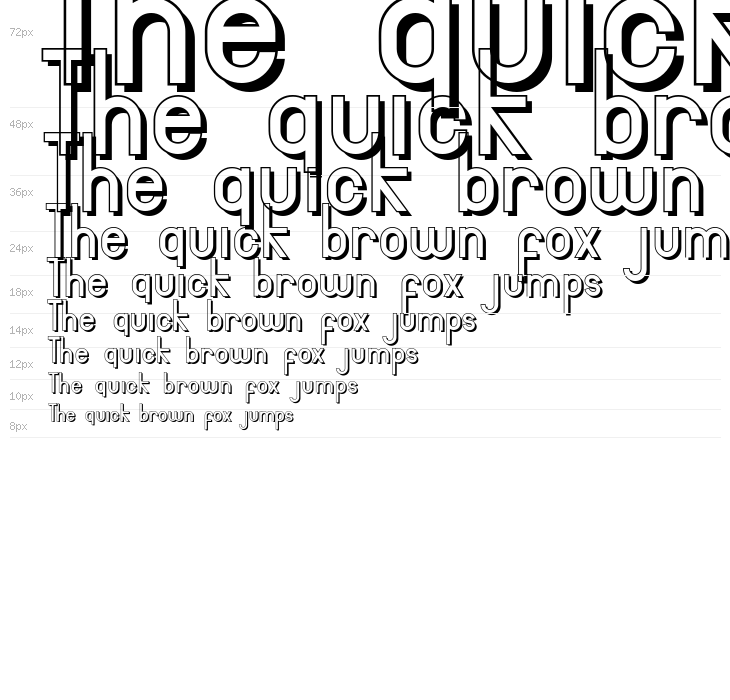 72px The quick
48px The quick bro
36px The quick brown
24px The quick brown fox jum
18px The quick brown fox jumps
14px The quick brown fox jumps
12px The quick brown fox jumps
10px The quick brown fox jumps
8px The quick brown fox jumps